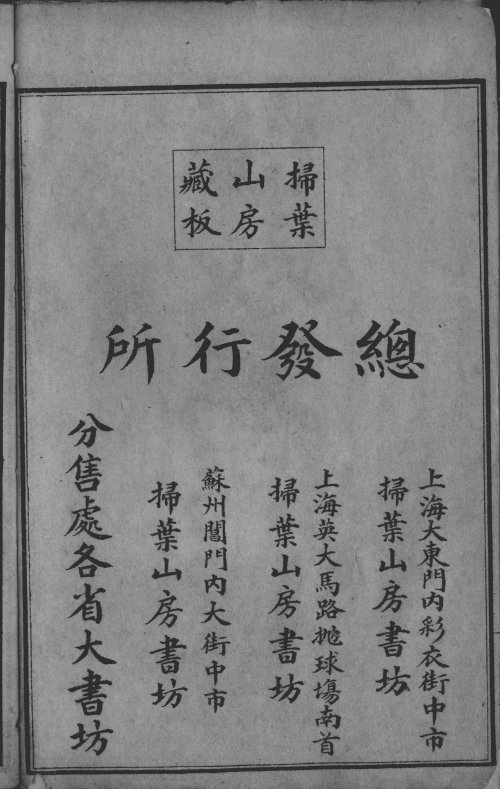 掃葉
山房
藏板
總發行所
上海大東門內彩衣街中市
掃葉山房書坊
上海英大馬路抛球塲南首
掃葉山房書坊
蘇州閶門內大街中市
掃葉山房書坊
分售處各省大書坊